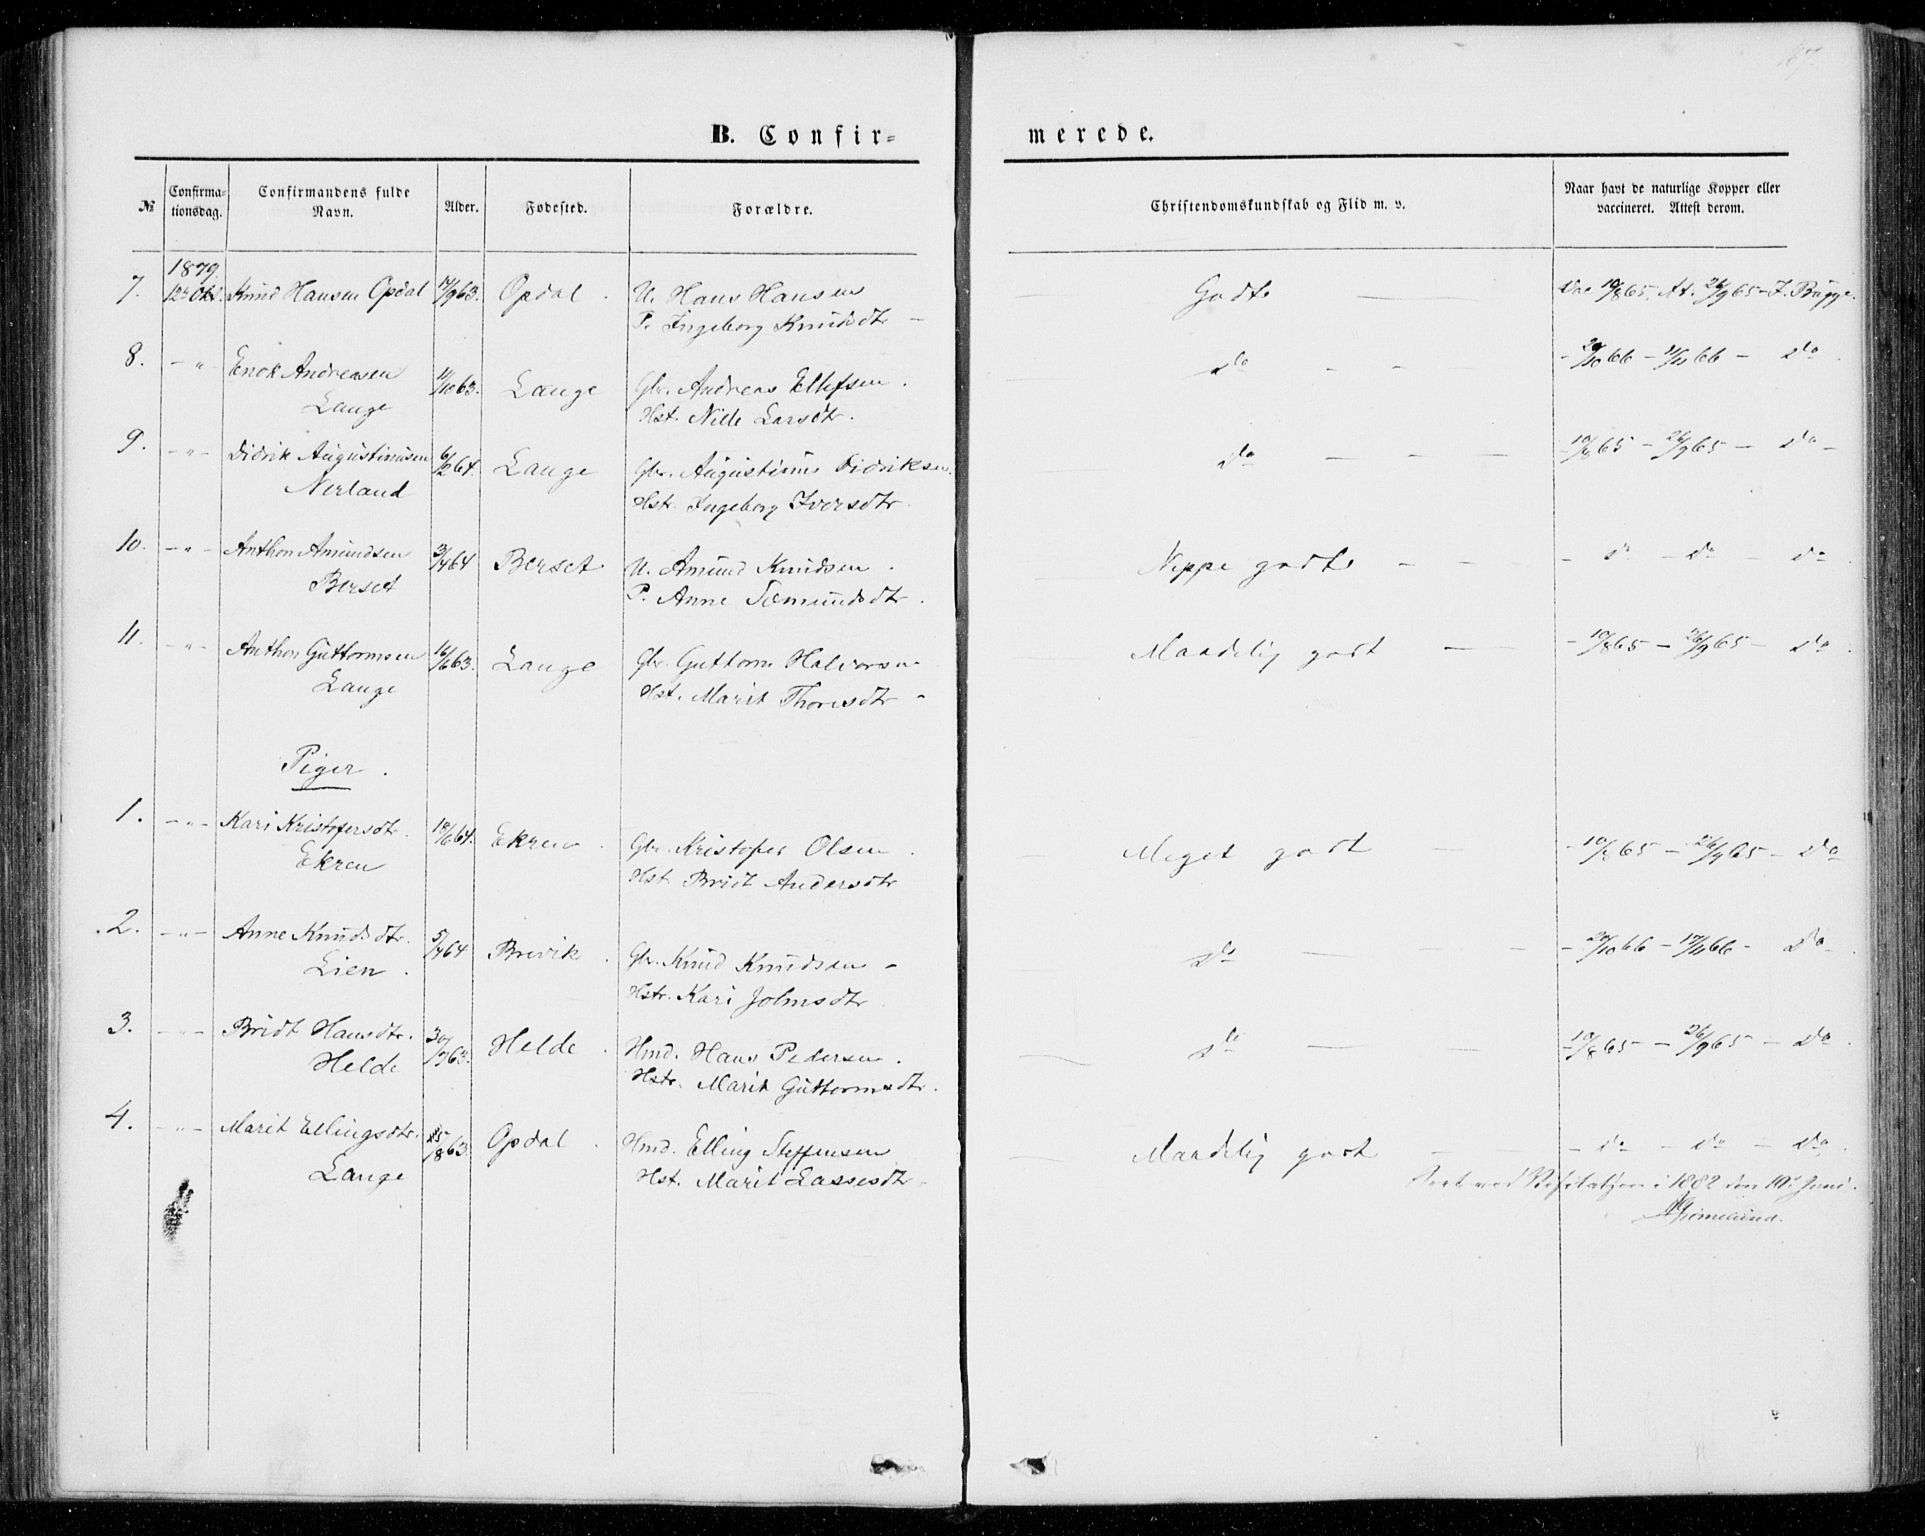 187.
B. Confir=
merede.
№
Confirma=
tionsdag.
Confirmandens fulde
Navn.
Alder.
Fødested.
Forældre.
Christendomskundskab og Flid m. v.
Naar havt de naturlige Kopper eller
vaccineret. Attest derom.
1879.
7. 12te Okt. Knud Hansen Opdal 17/9 63. Opdal. U. Hans Hansen Godt — Vac 19/8 65. At. 26/9 65 - J. Bugge.
P. Ingeborg Knudsdtr —
8. - " - Enok Andreasen 11/10 63. Lange Gbr. Andreas Ellefsen. do - - - - 29/10 66 - 11/11 66 - do
Lange Hst. Nille Larsdtr.
9. - " - Didrik Augustinusen 6/2 64. Lange Gbr. Augustinus Didriksen. do — - - - 19/8 65 - 26/9 65 - do -
Nerland Hstr. Ingeborg Iversdtr.
10. - " - Anthon Amundsen 3/4 64 Berset U. Amund Knudsen. Neppe godt - - - do - do - do
Berset P. Anne Sæmundsdtr.
11. - " - Anthon Guttormsen 16/6 63. Lange Gbr. Guttorm Halvorsen Maadelig godt — - - 19/8 65 - 26/9 65 - do.
Lange Hst. Marit Thoresdtr -
Piger.
1. - " - Kari Kristofersdtr. 18/6 64. Ekren. Gbr. Kristofer Olsen. Meget godt — - 19/8 65 - 26/9 65 - do
Ekren Hst. Bridt Andersdtr
2. - " - Anne Knudsdtr. 5/4 64 Brevik. Gbr. Knud Knudsen - do — - - - 29/10 66 - 17/11 66 - do -
Lien. Hstr. Kari Johnsdtr.
3. - " - Bridt Hansdtr. 30/ 63. Helde. Hmd. Hans Pedersen. do — - - - 19/8 65 - 26/9 65 - do
Helde Hstr. Marit Guttormsdtr.
4. - " - Marit Ellingsdtr. 25/8 63. Opdal. Hmd. Elling Steffensen Maadelig godt — - - do - do - do.
Lange Hst. Marit Lassesdtr -
Seet ved Visitatsen i 1882 den 10de Juni.